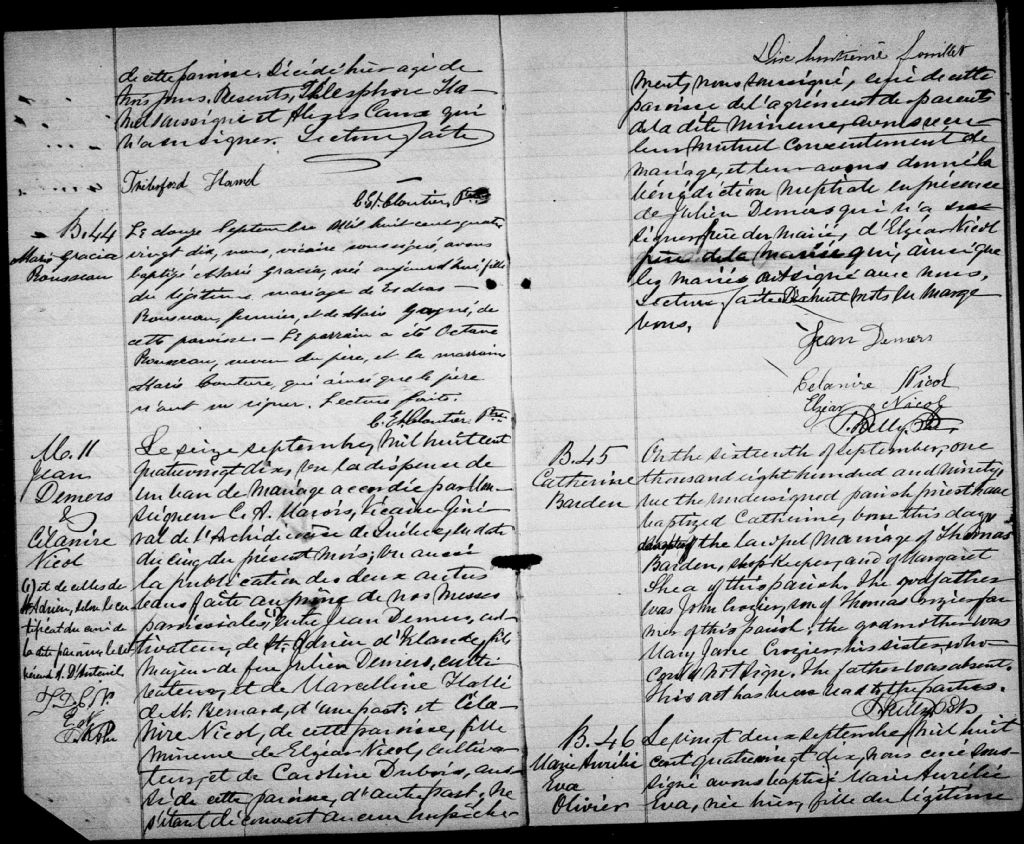 de cette paroisse. Décédé hier agé de
trois jours. Présents, Thélesphore Ha-
mel soussigné et Alexis Caux qui
n'a su signer. Lecture faite
Hamel
C. E. Cloutier, Ptre
B. 44
Marie Gracia
Rousseau
Le douze Septembre Mil huit cent quatre
vingt dix, nous, vicaire soussigné, avons
baptisé Marie Gracia, née aujourd'hui, fille
du légitime mariage de Esdras
Rousseau, fermier, et de Marie Gagné, de
cette paroisse. - Le parrain a été Octave
Rousseau, neveu du père, et la marraine
Marie Couture, qui ainsi que le père
n'ont su signer. Lecture faite.
C. E. Cloutier Ptre
M. 11
Jean
Demers
&
Célanire
Nicol
Le seize septembre, Mil huit cent
quatrevingt dix, vu la dispense de
un ban de mariage accordée par Mon-
seigneur C. A. Marois, Vicaire Géné-
ral de l'Archidiocèse de Québec, en date
du cinq du présent mois; vu aussi
la publication des deux autres
bans faite au prône de nos Messes
paroissiales, (1) entre Jean Demers, cul-
tivateur, de St. Adrien d'Irlande, fils
majeur de feu Julien Demers, culti-
vateur, et de Marcelline Hallé
de St. Bernard, d'une part; et Céla-
nire Nicol, de cette paroisse, fille
mineure de Elzéar Nicol, cultiva-
teur, et de Caroline Dubois, aus-
si de cette paroisse, d'autre part; ne
s'étant découvert aucun empêche-
(1) et de celles de
St Adrien, selon le cer-
tificat du curé de
la dite paroisse, le Ré-
vérend A. D'Auteuil,
Dix huitième feuillet
ment, nous soussigné, curé de cette
paroisse de l'agrément des parents
de la dite mineure, avons reçu
leur mutuel consentement de
mariage, et leur avons donné la
bénédiction nuptiale en présence
de Julien Demers qui n'a su
signer, frère du marié, d'Elzéar Nicol
père de la mariée qui, ainsi que
les mariés ont signé avec nous.
Lecture faite. Dix huit mots en marge
bons.
Jean Demers
Celanire Nicol
Elzéar Nicol
J. Kelly, Ptre
B. 45
Catherine
Barden
On the sixteenth of september, one
thousand eight hundred and ninety,
we the undersigned parish priest have
baptized Catherine, born this day,
daughter of the lawful marriage of Thomas
Barden, shop Keeper, and of Margaret
Shea of this parish. The godfather
was John Crozier, son of Thomas Crozier far-
mer of this parish; the godmother was
Mary Jane Crozier, his sister, who
could not sign. The father was absent.
This act has been read to the parties.
J. Kelly, Ptr
B. 46
Marie Aurélie
Eva
Olivier
Le vingt deux septembre, Mil huit
cent quatrevingt dix, nous curé sous-
signé avons baptisé Marie Aurélie
Eva, née hier, fille du légitime